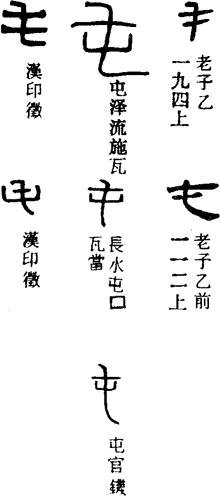 老子乙
一九四上
老子乙前
一一二上
屯泽流施瓦
長水屯囗
瓦當
屯官䥫
漢印徵
漢印徵